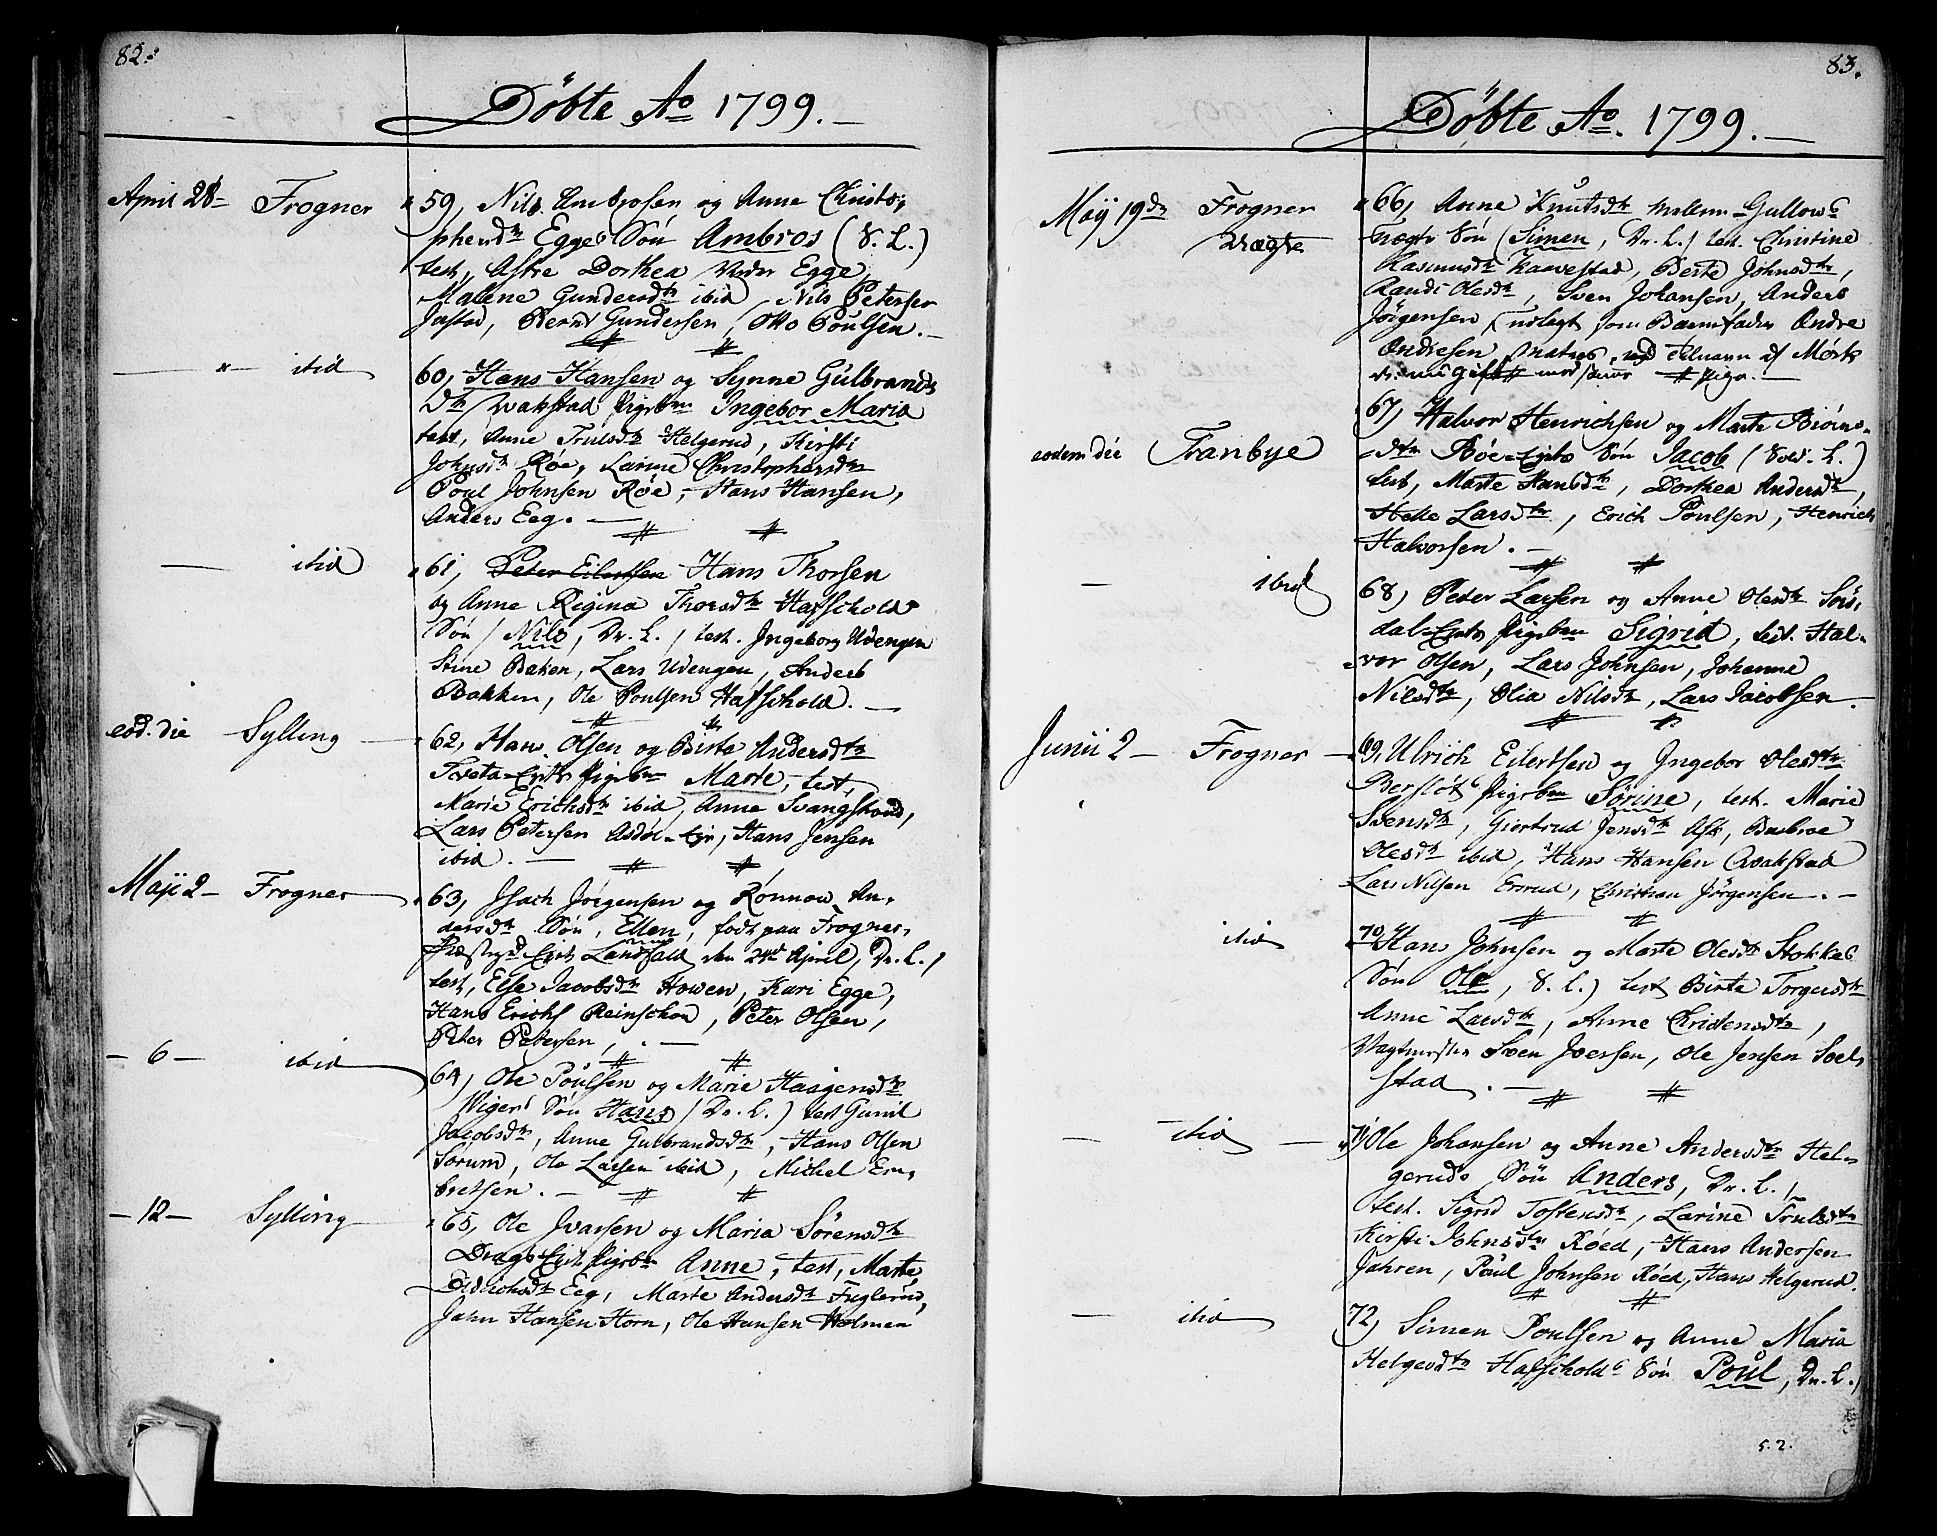 82.
Döbte Ao 1799.
April 28 Frogner 59, Nils Ambrosen og Anne Christo-
phersdtr Egges Sön Ambros (S. L.)
test, Astre Dorthea Egge,
Malene Gundersdtr ibid, Nils Petersen
Jastad, Bernt Gundersen, Otto Poulsen.
ibid 60, Hans Hansen og Synne Gulbrands
dtr Qvakstad Pigebn Ingebor Maria
test, Anne Trulsdtr Helgerud, Kirsti
Johnsdtr Röe, Larine Christophersdtr
Poul Johnsen Röe, Hans Hansen,
Anders Eeg.
ibid 61, Peter Eilertsen Hans Thorsen
og Anne Regina Thorsdtr Hafschold
Sön / Nils, Dr. L., / test. Ingeborg Udengen
Stine Baken, Lars Udengen, Anders
Bakken, Ole Poulsen Hafschold.
eod. die Sylling 62, Hans Olsen og Birte Andersdtr
Tveta-Eye Pigebn Marte, test,
Marie Erichsdtr ibid, Anne Svangstrand,
Lars Petersen Asdöl-Eje, Hans Jensen
ibid.
Maji 2 Frogner 63, Isach Jörgensen og Rönnow An-
dersdtr Sön, Ellen, födt paa Frogner
den 24de April, Dr. L.,
test, Else Jacobsdtr Howen, Kari Egge,
Hans Erichs Reinschou, Peter Olsen,
Peter Petersen,
6 ibid 64, Ole Poulsen og Marie Haagensdtr
Vigers Sön Hans (Dr. L.) test Gunil
Jacobsdtr, Anne Gulbrandsdtr, Hans Olsen
Sorum, Ole Larsen ibid, Michel Em-
bretsen.
12 Sylling 65, Ole Ivarsen og Maria Sörensdtr
Drags Eje Pigebn Anne, test, Marte
Didrichsdtr Eeg, Marte Andersdtr Fuglerud,
John Hansen Horn, Ole Hansen Holmen
83.
Döbte Ao. 1799.
Maij 19de Frogner 66, Anne Knutsdtr Gullows
Uægte Uægte Sön (Simen, Dr. L.) test. Christine
Rasmusdtr Kaavestad, Berte Johnsdtr,
Randi Olesdtr, Sven Johansen, Anders
Jörgensen, udlagt som Barnefader Andre
Andresen Matros, med Tilnavn af Mörk
Pige.
eodem die Tranbye 67, Halvor Henrichsen og Marte Biörns-
dtr Röe-Eies Sön Jacob (Sold. L.)
test, Marte Hansdtr, Dorthea Andersdtr,
Helle Larsdtr, Erich Poulsen, Henrich
Halvorsen.
ibid 68, Peder Larsen og Anne Olesdtr Sörs-
dal-Eies Pigebn Sigrid, test. Hal-
vor Olsen, Lars Johnsen, Johanne
Nilsdtr, Olia Nilsdtr, Lars Jacobsen.
Junii 2 Frogner 69, Ulrich Eilertsen og Ingebor Olesdtr
Berflöts Pigebn Sörine, test. Marie
Svensdtr, Giertrud Jensdtr Ask, Barbroe
Olesdtr ibid, Hans Hansen Qvakstad
Lars Nilsen Ersrud, Christian Jörgensen.
ibid 70, Hans Johnsen og Marte Olesdtr Stokkes
Sön Ole, S. L.) test Birte Torgersdtr
Anne Larsdtr, Anne Christensdtr,
Vagtmester Sven Joersen, Ole Jensen Soel-
stad.
ibid 71, Ole Johansen og Anne Andersdtr Hel-
geruds Sön Anders, Dr. L.,
test. Sigrid Tostensdtr, Larine Trulsdtr
Kirsti Johnsdtr Röed, Hans Andersen
Jahren, Poul Johnsen Röed, Hans Helgerud.
ibid 72, Simen Poulsen og Anne Maria
Helgesdtr Hafscholds Sön Poul, Dr. L.,
5.2.